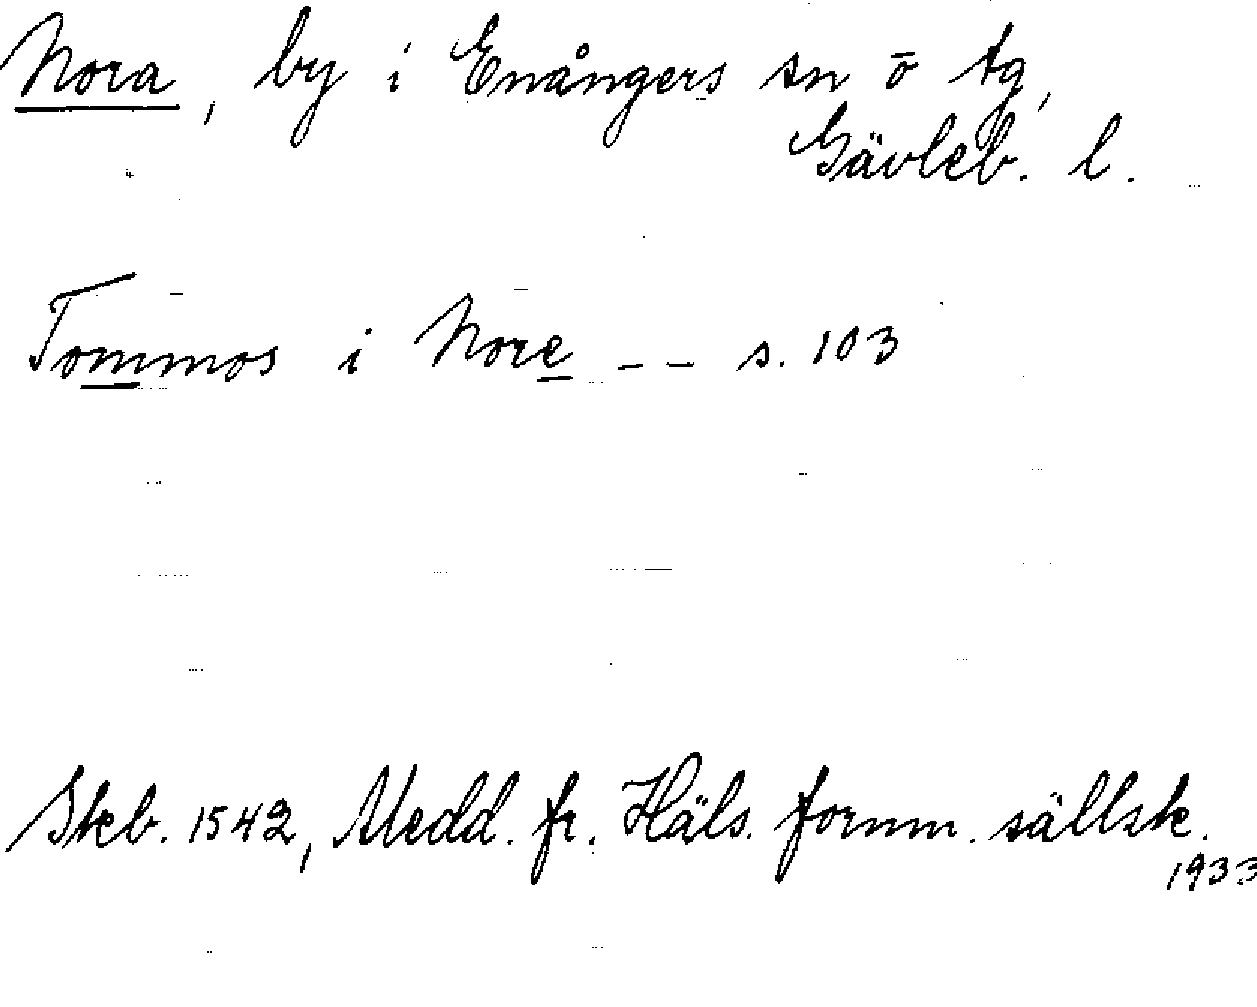 Nora, by i Enångers sn ö tg,
Gävleb. l.
Tommos i Nore -- s. 103
Skb. 1542, Medd. fr. Häls. fornm. sällsk.
1933